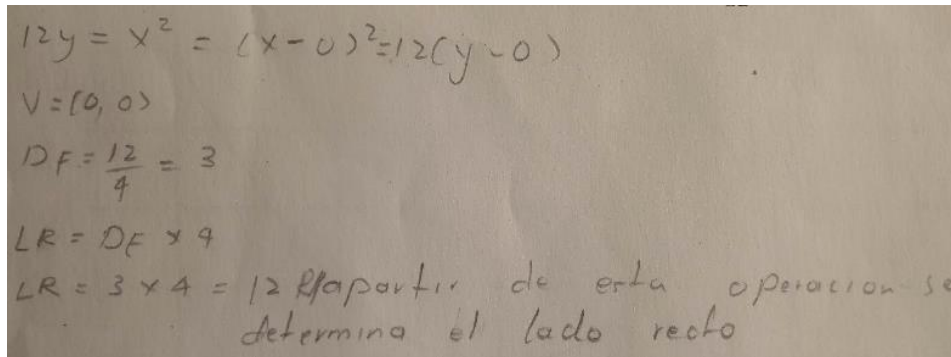 12y = x² = (x-0)²=12(y-0)
V=(0,0)
DF = 12/4 = 3
LR = DF x 4
LR = 3 x 4 = 12 R/apartir de esta operacion se
determina el lado recto